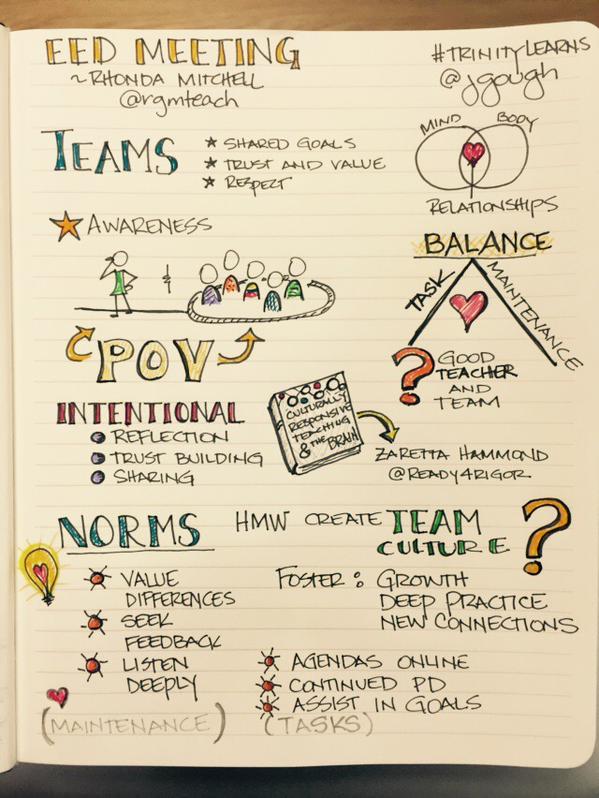 EED MEETING
~ RHONDA MITCHELL
@rgmteach
#TRINITYLEARNS
@jgough
TEAMS
★ SHARED GOALS
★ TRUST AND VALUE
★ RESPECT
MIND BODY
RELATIONSHIPS
★ AWARENESS
BALANCE
TASK
MAINTENANCE
POV
? GOOD
TEACHER
AND
TEAM
INTENTIONAL
REFLECTION
TRUST BUILDING
SHARING
CULTURALLY
RESPONSIVE
TEACHING
& THE BRAIN
ZARETTA HAMMOND
@READY4RIGOR
NORMS
HMW CREATE TEAM
CULTURE ?
VALUE
DIFFERENCES
SEEK
FEEDBACK
LISTEN
DEEPLY
(MAINTENANCE)
FOSTER: GROWTH
DEEP PRACTICE
NEW CONNECTIONS
AGENDAS ONLINE
CONTINUED PD
ASSIST IN GOALS
(TASKS)